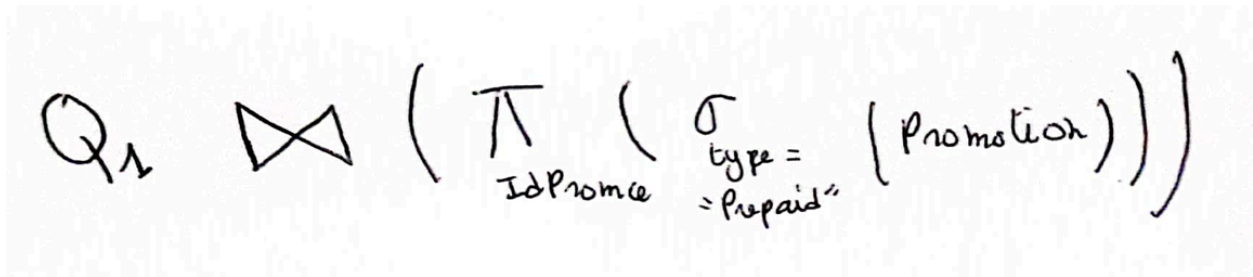 Q₁ ⋈ ( π IdPromce ( σ type = "Prepaid" ( Promotion ) ) )